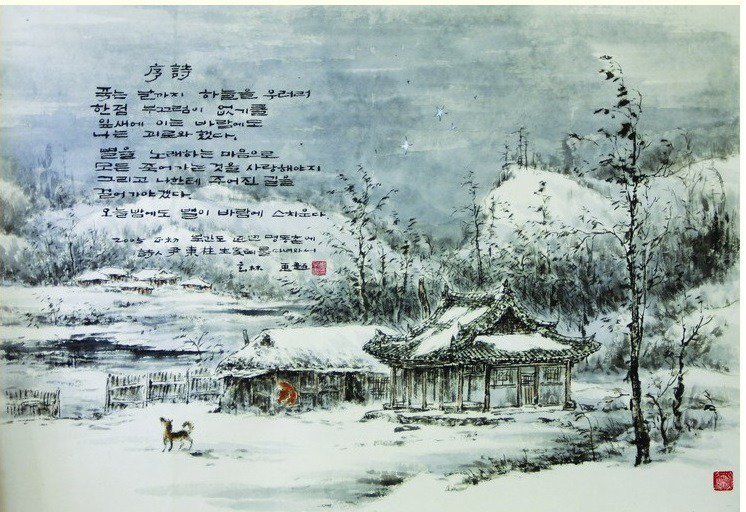 序詩
죽는 날까지 하늘을 우러러
한점 부끄럼이 없기를
잎새에 이는 바람에도
나는 괴로와 했다.
별을 노래하는 마음으로
모든 죽어가는 것을 사랑해야지
그리고 나한테 주어진 길을
걸어가야겠다.
오늘밤에도 별이 바람에 스치운다
2005 북간도 명동촌에
詩人 尹東柱 生家를